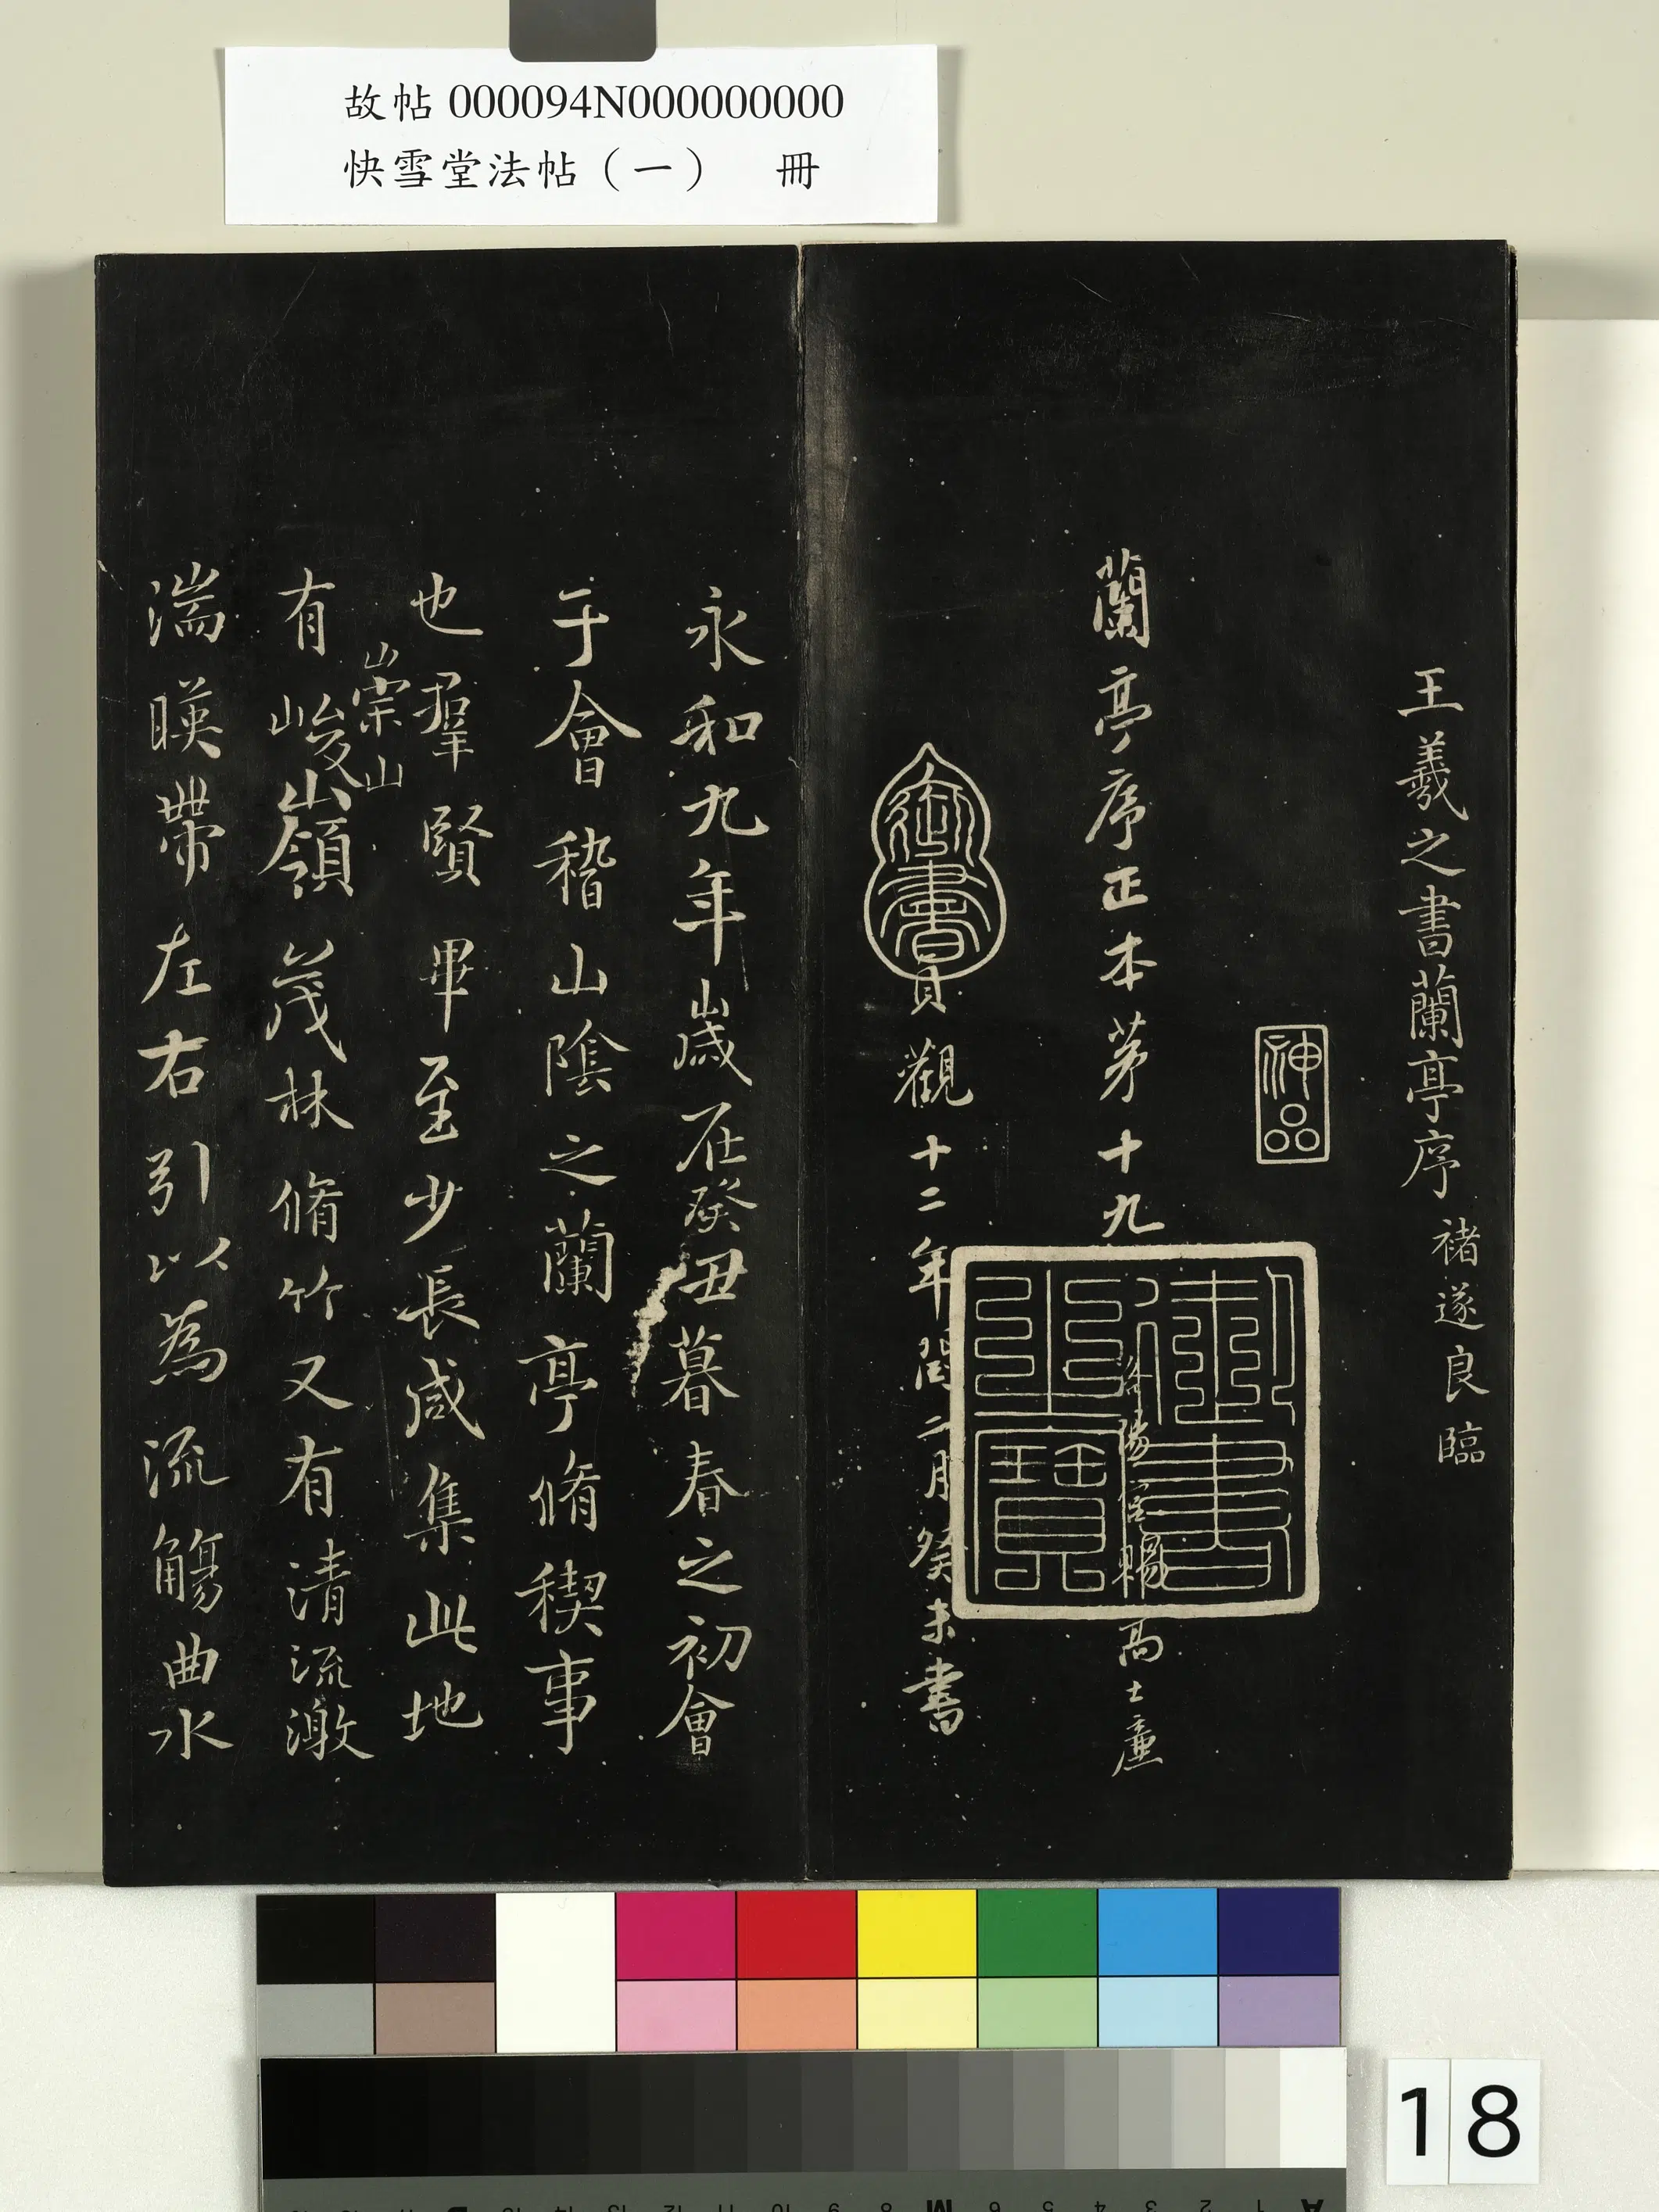 故帖 000094N000000000
快雪堂法帖（一） 冊
王羲之書蘭亭序 褚遂良臨
神品
蘭亭序正本第十九
洛陽宮賜高士廉
御書之寶
御書
貞觀十二年閏二月癸未書
永和九年歲在癸丑暮春之初會
于會稽山陰之蘭亭脩稧事
也羣賢畢至少長咸集此地
崇山
有峻嶺茂林脩竹又有清流激
湍暎帶左右引以為流觴曲水
18